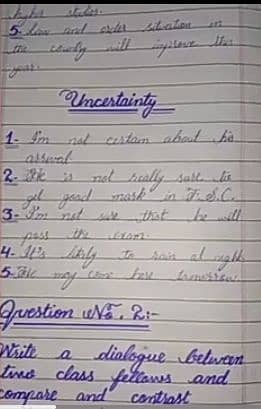 higher studies.
5. Law and order situation in
the country will improve this
year.
Uncertainty
1- I'm not certain about his
arrival.
2- He is not really sure to
get good mark in F.S.C.
3- I'm not sure that he will
pass the exam.
4- It's likely to rain at night.
5- He may come here tomorrow.
Question No. 2:-
Write a dialogue between
two class fellows and
compare and contrast